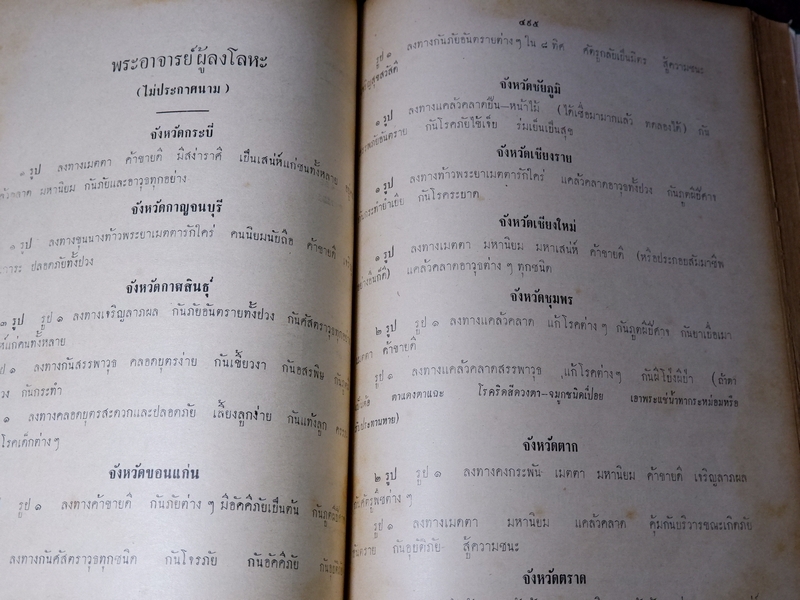 พระอาจารย์ผู้ลงโลหะ
(ไม่ประกาศนาม)
จังหวัดกระบี่
๑ รูป ลงทางเมตตา ค้าขายดี มีสง่าราศี เป็นเสน่ห์แก่ชนทั้งหลาย
มหานิยม กันภัยและอาวุธทุกอย่าง
จังหวัดกาญจนบุรี
๑ รูป ลงทางขุนนางท้าวพระยาเมตตารักใคร่ คนนิยมนับถือ ค้าขายดี
ปลอดภัยทั้งปวง
จังหวัดกาฬสินธุ์
๓ รูป รูป ๑ ลงทางเจริญลาภผล กันภัยอันตรายทั้งปวง กันศัสตราวุธ
แก่คนทั้งหลาย
รูป ๑ ลงทางกันสรรพาวุธ คลอดบุตรง่าย กันเขี้ยวงา กันอสรพิษ
กันกระทำ
๑ ลงทางคลอดบุตรสะดวกและปลอดภัย เลี้ยงลูกง่าย กันแท้งลูก
โรคเด็กต่าง ๆ
จังหวัดขอนแก่น
รูป ๑ ลงทางค้าขายดี กันภัยต่าง ๆ มีอัคคีภัยเป็นต้น
ลงทางกันศัสตราวุธทุกชนิด กันโจรภัย กันอัคคีภัย
๔๙๕
รูป ๑ ลงทางกันภัยอันตรายต่าง ๆ ใน ๘ ทิศ ศัตรูกลับเป็นมิตร สู้ความชนะ
จังหวัดชัยภูมิ
๑ รูป ลงทางแคล้วคลาดปืน–หน้าไม้ (ได้เชื่อมามากแล้ว ทดลองได้) กัน
ภัยอันตราย กันโรคภัยไข้เจ็บ ร่มเย็นเป็นสุข
จังหวัดเชียงราย
๑ รูป ลงทางท้าวพระยาเมตตารักใคร่ แคล้วคลาดอาวุธทั้งปวง กันภูตผีปีศาจ
กันกระทำย่ำเยีย กันโรคระบาด
จังหวัดเชียงใหม่
๑ รูป ลงทางเมตตา มหานิยม มหาเสน่ห์ ค้าขายดี (หรือประกอบสัมมาชีพ
แคล้วคลาดอาวุธต่าง ๆ ทุกชนิด
จังหวัดชุมพร
๒ รูป รูป ๑ ลงทางแคล้วคลาด แก้โรคต่าง ๆ กันภูตผีปีศาจ กันยาเบื่อเมา
ค้าขายดี
รูป ๑ ลงทางแคล้วคลาดสรรพาวุธ แก้โรคต่างๆ กันผีโป่งผีป่า (ถ้าตา
ตาแดงตาแฉะ โรคริดสีดวงตา–จมูกชนิดเปื่อย เอาพระแช่น้ำทากระหม่อมหรือ
รับประทานหาย)
จังหวัดตาก
๒ รูป รูป ๑ ลงทางคงกระพัน เมตตา มหานิยม ค้าขายดี เจริญลาภผล
ต่าง ๆ
รูป ๑ ลงทางเมตตา มหานิยม แคล้วคลาด คุ้มกันบริวารขณะเกิดภัย
อันตราย กันอุบัติภัย สู้ความชนะ
จังหวัดตราด